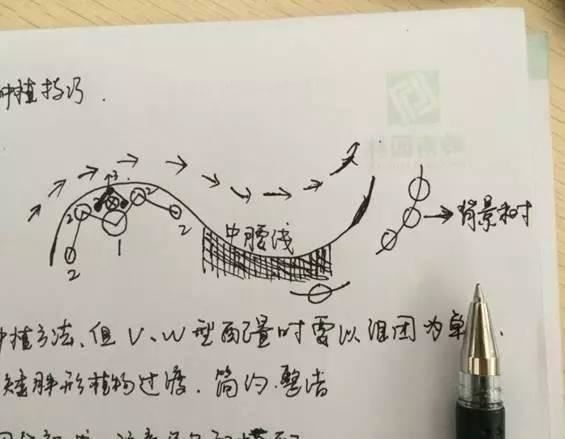 种植技巧.
3
2 2
2
1
2
中腰线
背景树
种植方法、但V、W型配置时需以组团为单
矮胖形植物过渡.简约.整洁